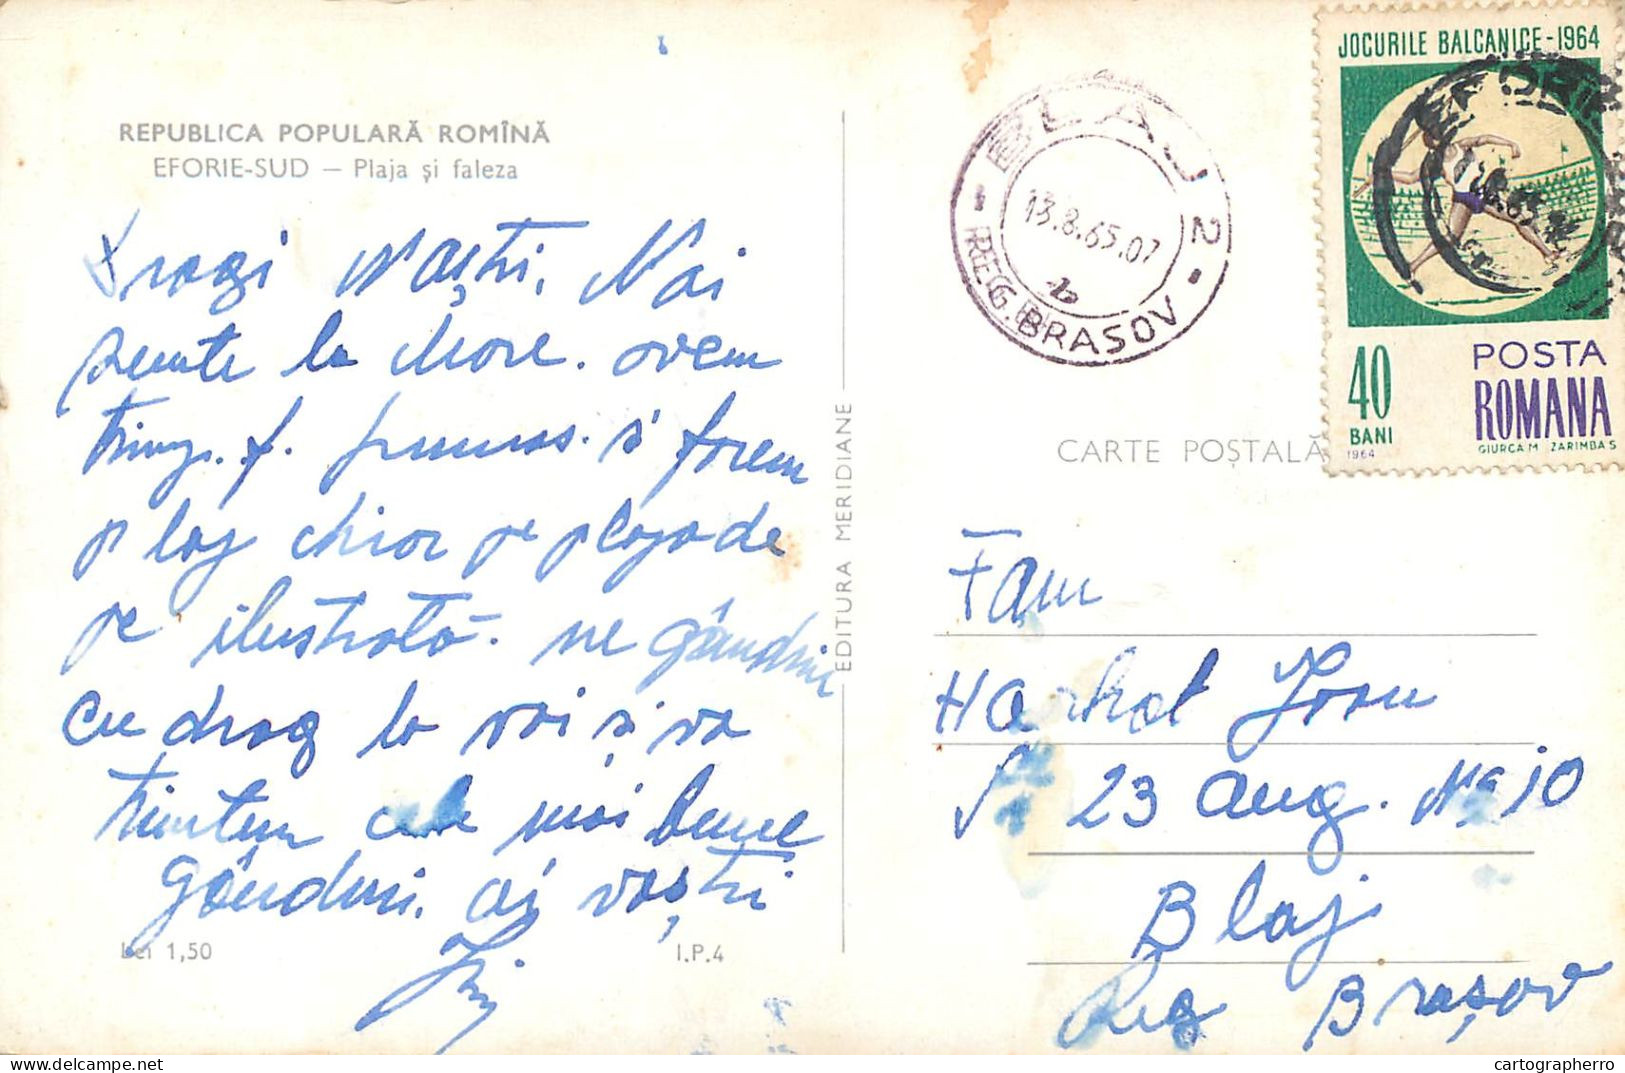 REPUBLICA POPULARĂ ROMÎNĂ
EFORIE-SUD — Plaja și faleza
Dragi Naști. Noi
sunte la More. avem
timp. f. frumos. și facem
plaj chior pe plaja de
pe ilustrată. ne gândim
cu drag la voi și va
trimitem cele mai bune
gânduri. ai voștri
Lei 1,50
I.P.4
EDITURA MERIDIANE
BLAJ 2
13.8.65.07
REG. BRASOV
JOCURILE BALCANICE-1964
40
BANI
POSTA
ROMANA
1964
GIURCA M ZARIMBA S
CARTE POȘTALĂ
Fam
Ioan
23 Aug. No 10
Blaj
Reg Brașov
cartographerro